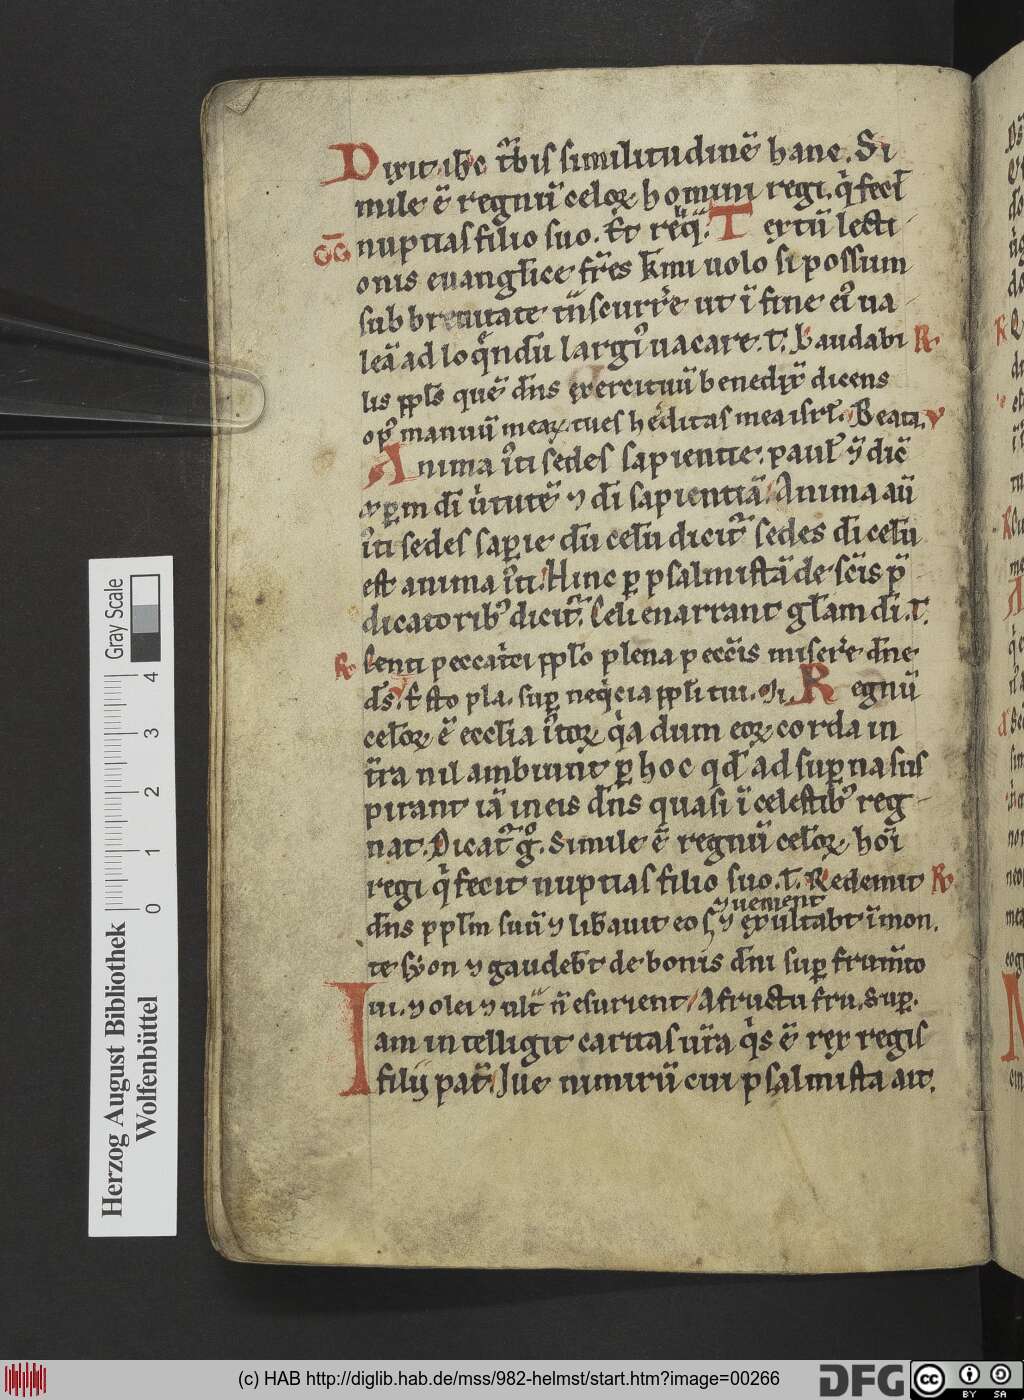 Dixit ih̄c t̾bis similitudinē hanc. Si
mile ē regnū celoꝝ homini regi. q̇ fecͥt
nuptias filio suo. Et reͥq̄. Textū lecti
onis euangl̄ice fr̄es k̄mi uolo si possum
sub breuitate t̄nscurr̄e ut ī fine eiꝰ ua
leā ad loq̄nd̄u largiꝰ uacare. T. Laudabi R
lis ppl̄s quē d̄ns exercituū benedix̄ dicens
opꝰ manuū meaꝝ tu es heͬditas mea isrl̄. Beata. V
Anima iͦti sedes sapientie. paul̾ ⁊ dic̄
xp̄m dī u̇tutē ⁊ dī sapientiā. Anima aū
iͦti sedes sapīe d̄u cel̄u dicit̾ sedes dī cel̄u
est anima iͦti. Hinc ꝑ psalmistā de sc̄is p̄
dicatoribꝰ dicit̾. Celi enarrant gl̄am dī. T.
R Genti peccat̾ci ppl̄o plena pecc̄is miser̾e dn̄e
ds̄. Esto pla. suꝑ neq̇cia ppl̄i tui. Mi. Regnū
celoꝝ ē eccl̄ia iͦtoꝝ q̇a dum eoꝝ corda in
t̄ra nil ambiunt ꝑ hoc qd̄ ad suꝑna sus
pirant iā in eis d̄ns quasi ī celestibꝰ reg
nat. Dicat̾ gͦ. Simile ē regnū celoꝝ hoī
regi q̇ fecit nuptias filio suo. T. Redemit R
d̄ns ppl̄m suū ⁊ lib̄auit eos ⁊ uenient ⁊ exultab̄t ī mon
te syon ⁊ gaudeb̄t de bonis dn̄i suꝑ frum̄to
uī. ⁊ olei ⁊ ult̄ n̄ esurient. A fructu fru. Suꝑ.
Iam intelligit caritas ur̄a q̇s ē rex regis
filij pat̾. Ille nimirū cui psalmista ait.
Herzog August Bibliothek
Wolfenbüttel
Gray Scale
0 1 2 3 4
(c) HAB http://diglib.hab.de/mss/982-helmst/start.htm?image=00266
DFG
cc BY SA